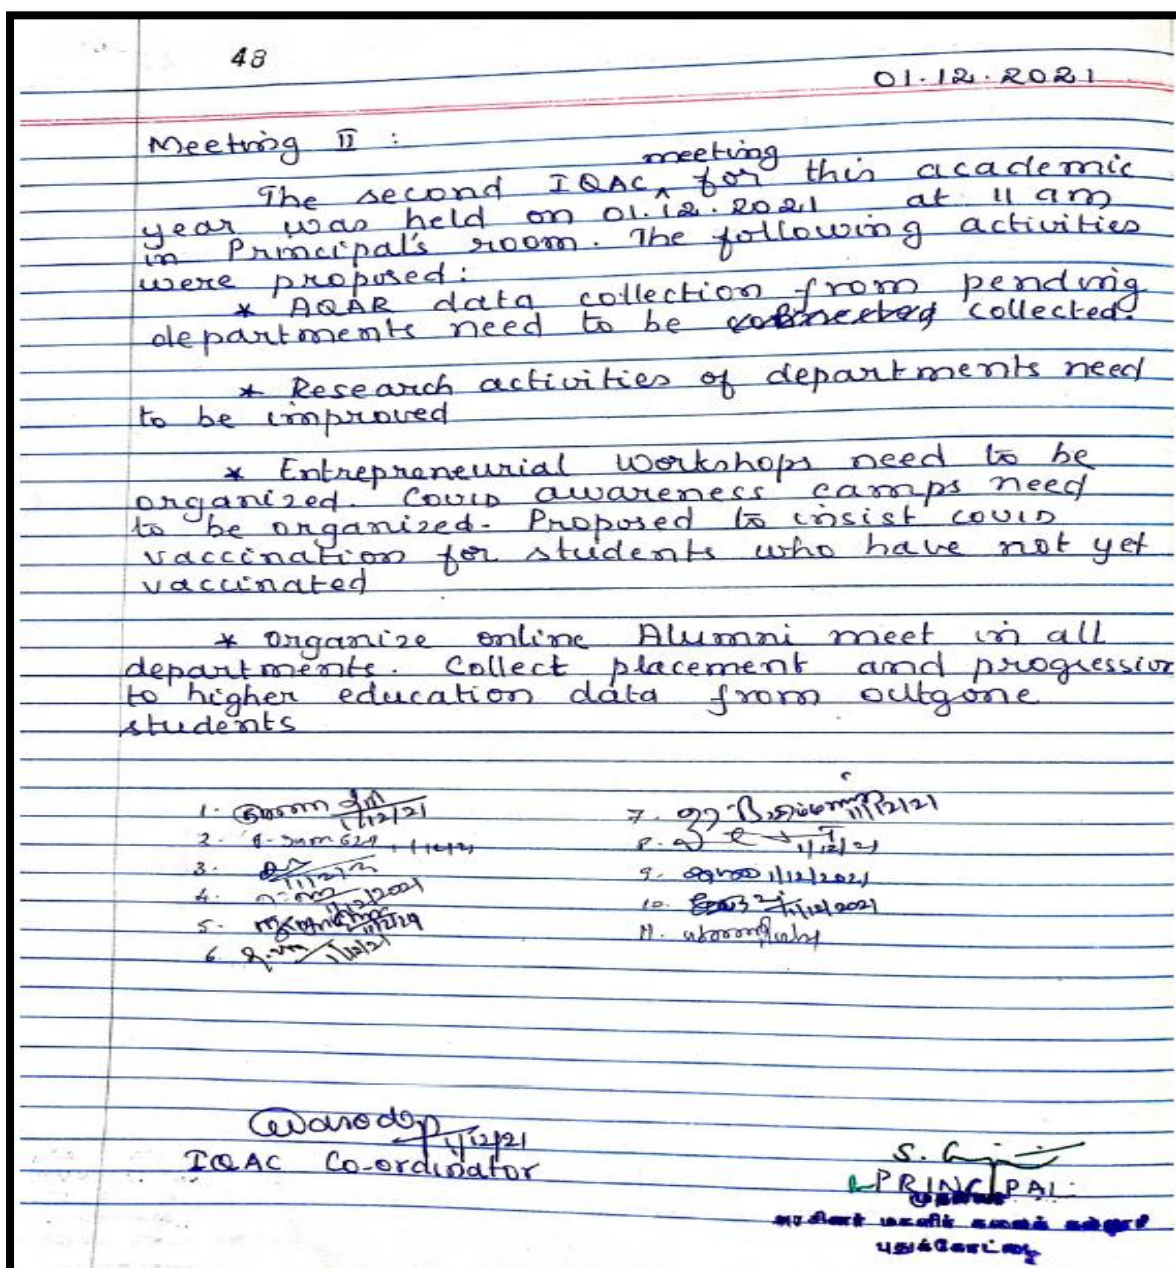 48
01.12.2021
Meeting II :
The second IQAC meeting for this academic
year was held on 01.12.2021 at 11 am
in Principal's room. The following activities
were proposed:
* AQAR data collection from pending
departments need to be collected.
* Research activities of departments need
to be improved
* Entrepreneurial workshops need to be
organized. Covid awareness camps need
to be organized. Proposed to insist covid
vaccination for students who have not yet
vaccinated
* Organize online Alumni meet in all
departments. Collect placement and progression
to higher education data from outgone
students
1. 1/12/21
2.
3.
4. 1/12/2021
5.
6. 1/12/21
7. 1/12/21
8. 1/12/21
9. 1/12/2021
10. 1/12/2021
11.
1/12/21
IQAC Co-ordinator
S.
PRINCIPAL
முதல்வர்
அரசினர் மகளிர் கலைக் கல்லூரி
புதுக்கோட்டை